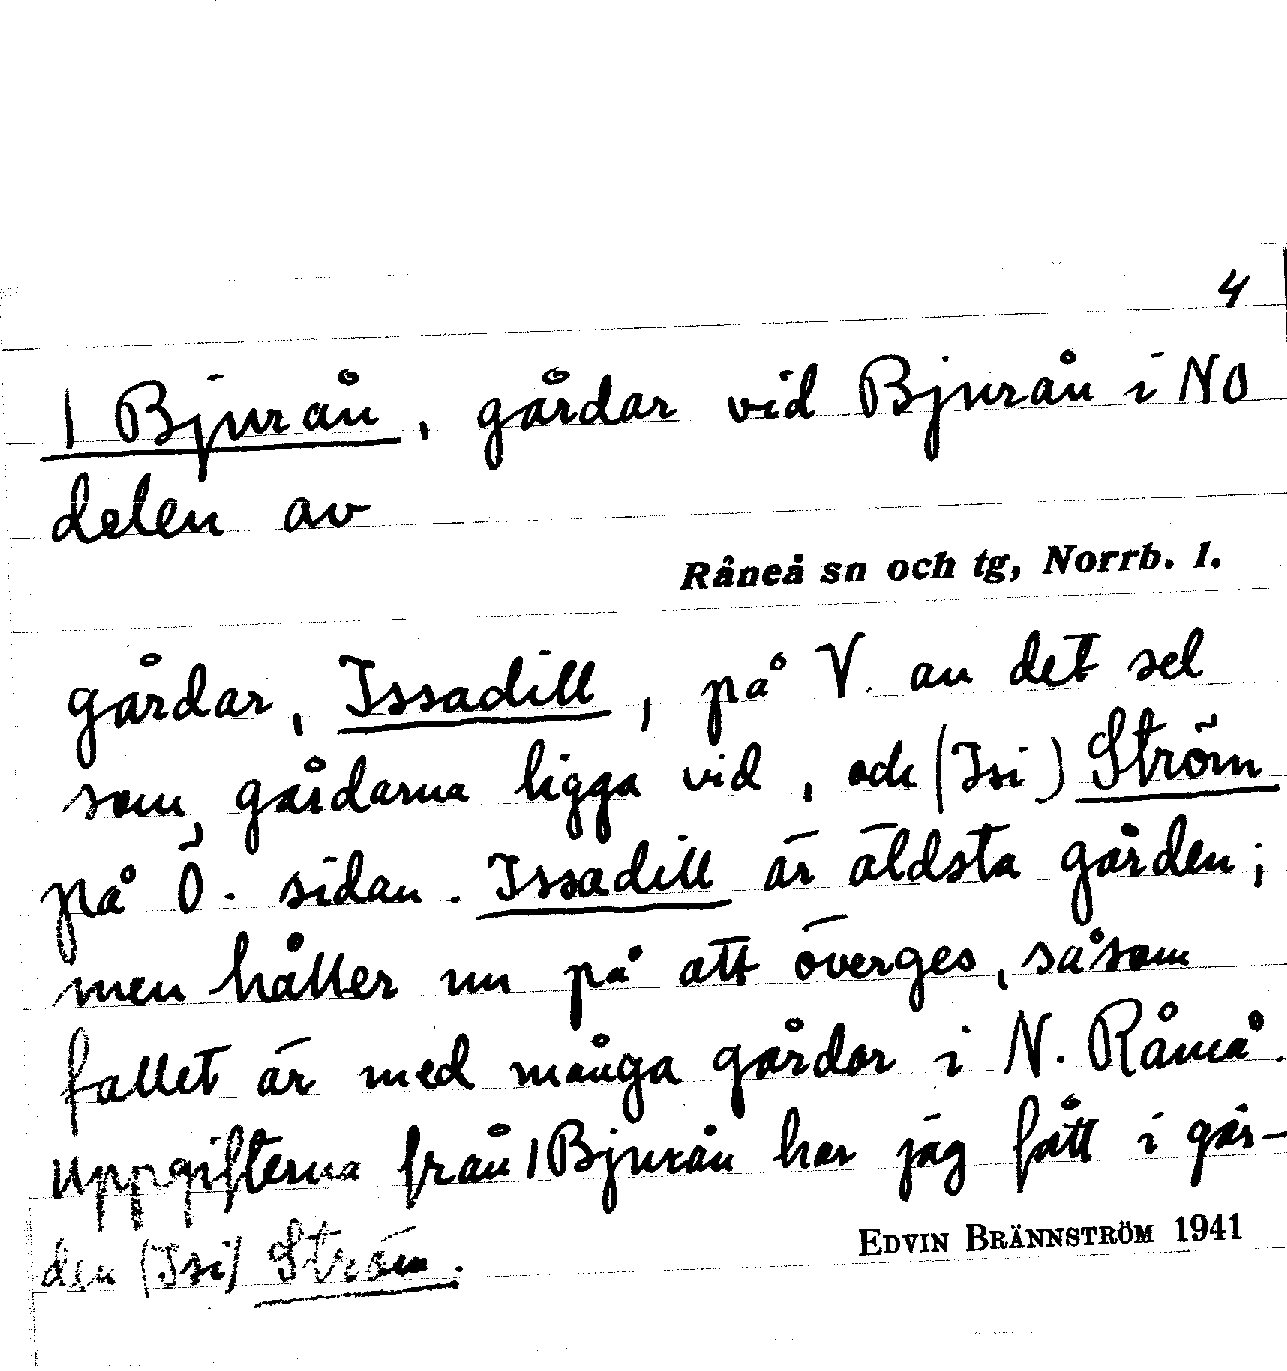 4
I Bjurån, gårdar vid Bjurån i NO
delen av
Råneå sn och tg, Norrb. l.
gårdar, Issadill, på V. av det sel
som gårdarna ligga vid, och (Isi) Ström
på Ö. sidan. Issadill är äldsta gården;
men håller nu på att överges, såsom
fallet är med många gårdar i N. Råneå.
Uppgifterna från I Bjurån har jag fått i går-
den (Isi) Ström.
EDVIN BRÄNNSTRÖM 1941